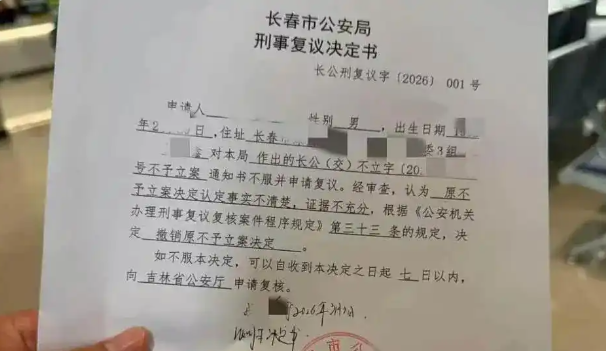 长春市公安局
刑事复议决定书
长公刑复议字〔2026〕001号
申请人 性别 男 ，出生日期
年2 日，住址 长春 委3组
对本局 作出的长公（交）不立字〔20
号不予立案 通知书不服并申请复议。经审查，认为 原不
予立案决定认定事实不清楚，证据不充分，根据《公安机关
办理刑事复议复核案件程序规定》第三十三 条的规定，决
定 撤销原不予立案决定 。
如不服本决定，可以自收到本决定之日起 七 日以内，
向 吉林省公安厅 申请复核。
2026年